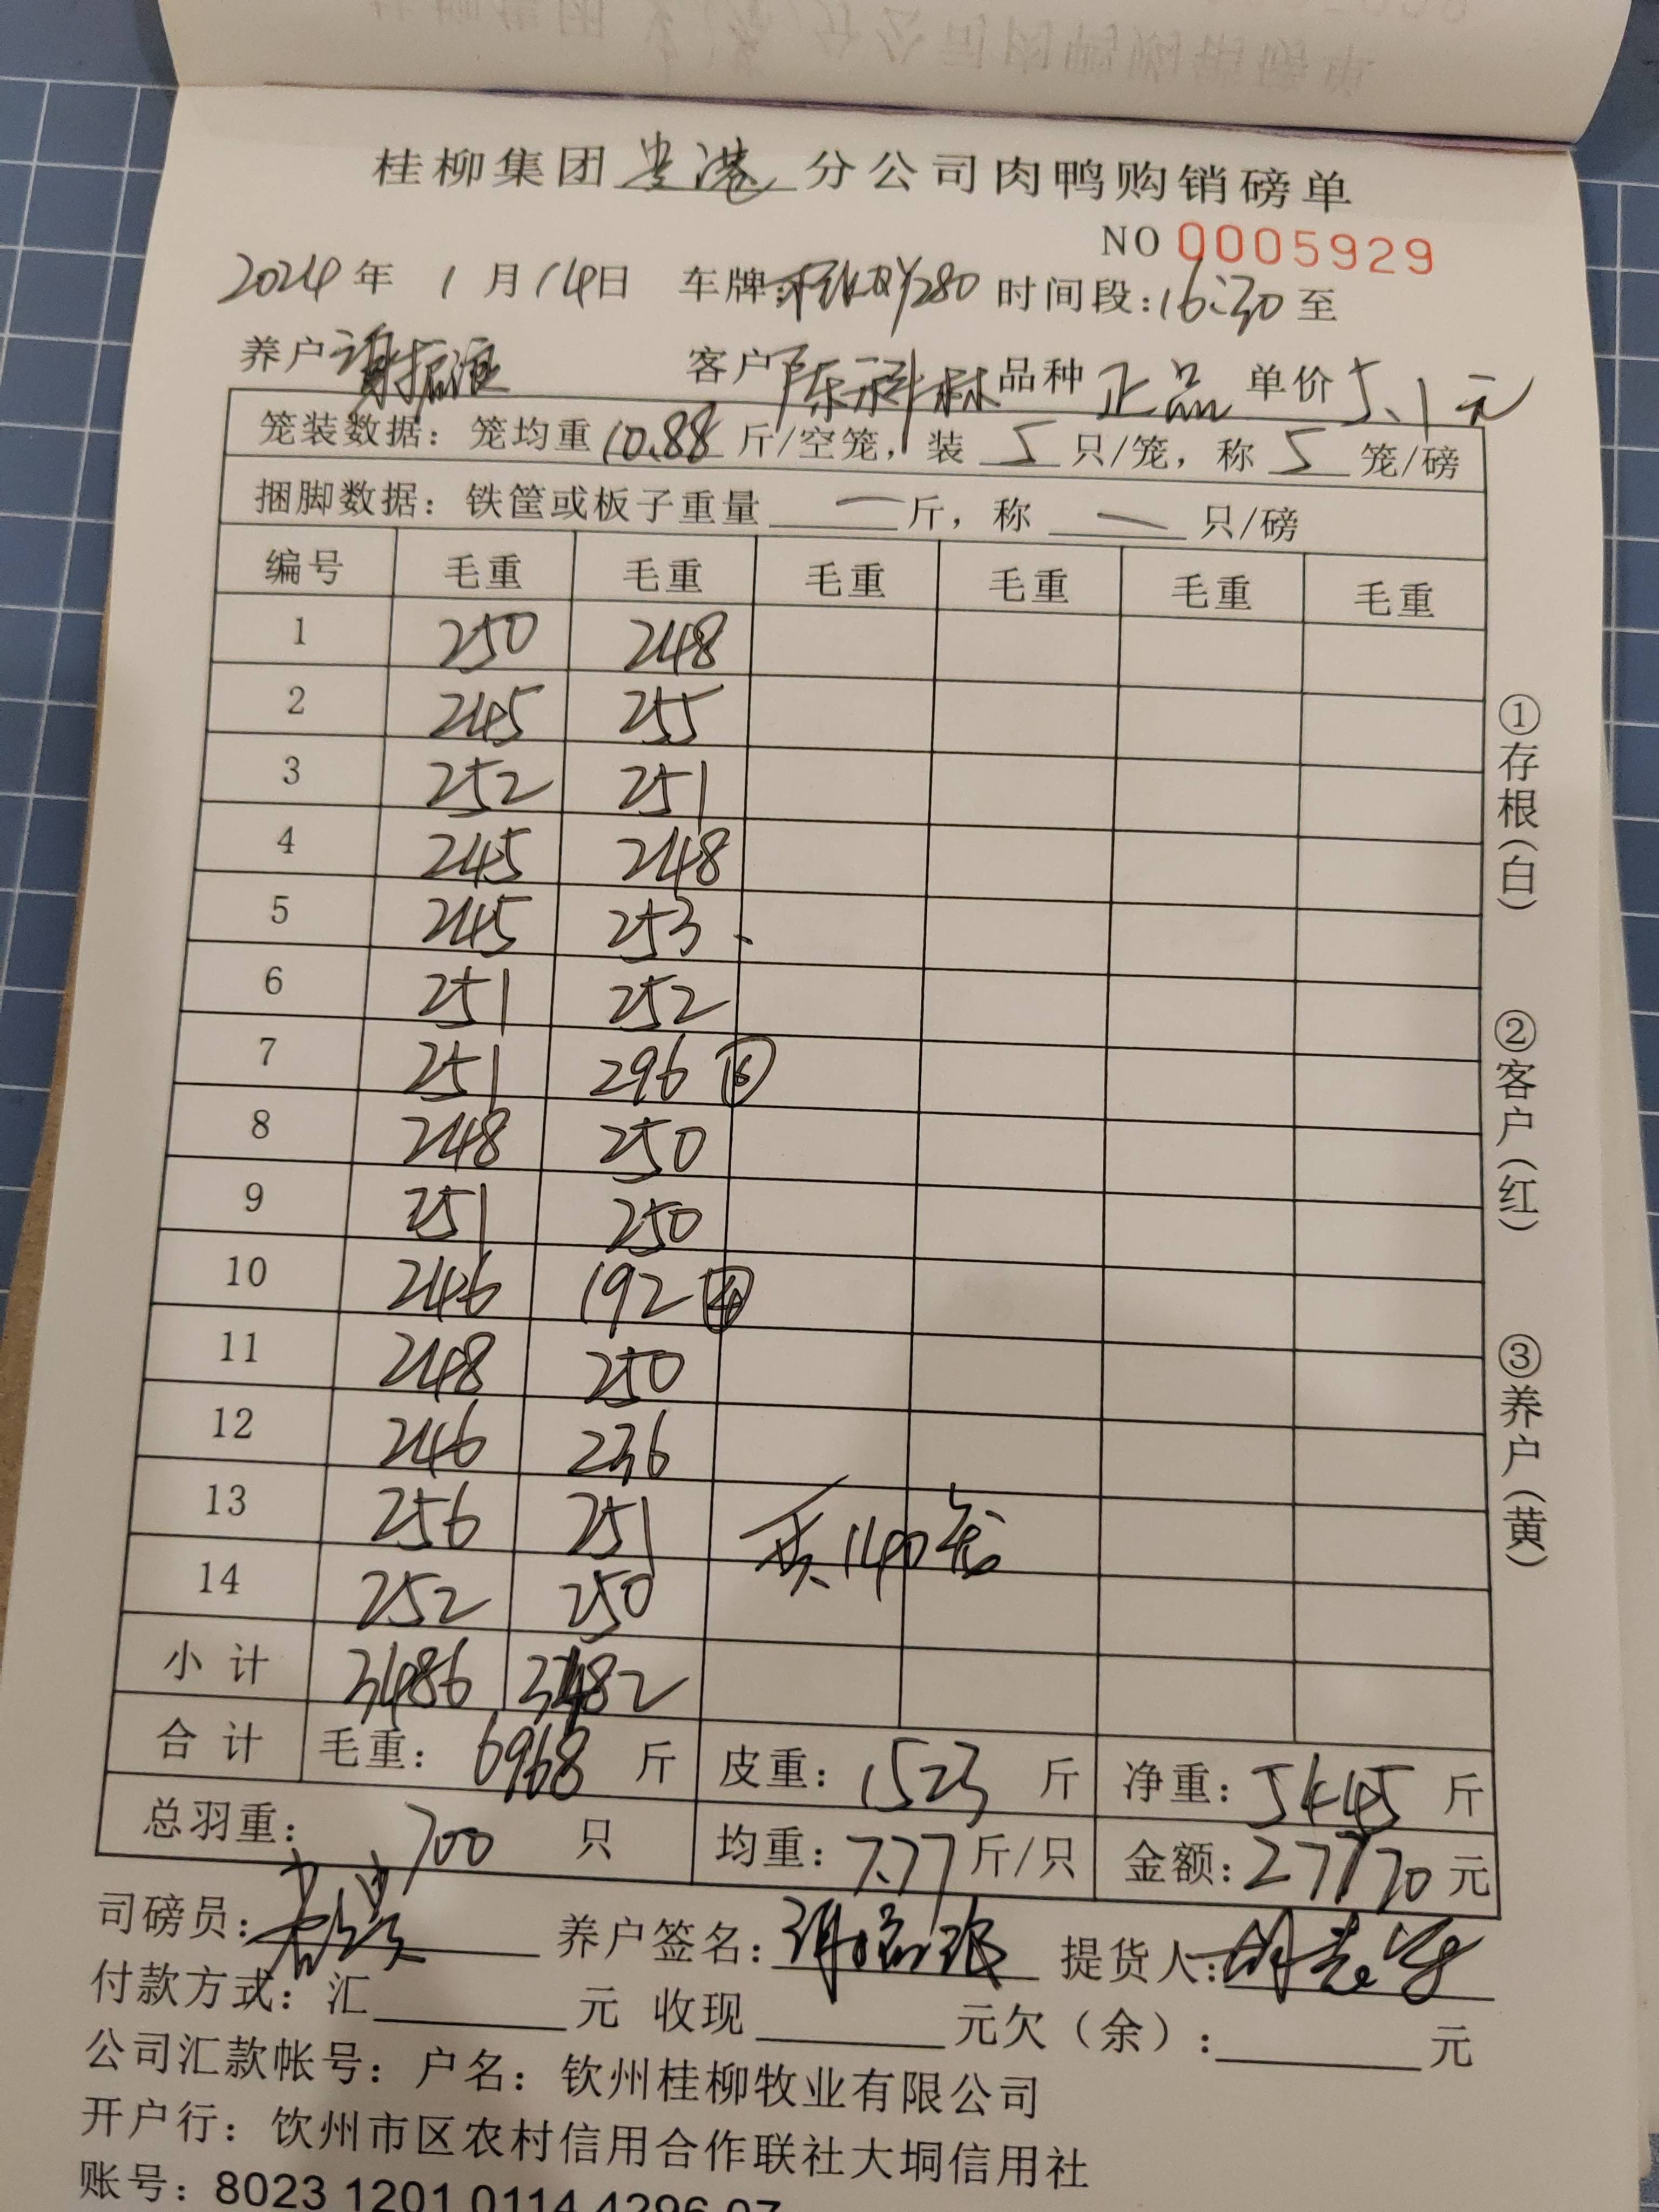 桂柳集团贵港分公司肉鸭购销磅单
NO 0005929
2024年 1月14日 车牌: 280 时间段:16:30至
养户 谢振 客户 陈科林 品种 正品 单价 5.1元
笼装数据: 笼均重 10.88 斤/空笼, 装 5 只/笼, 称 5 笼/磅
捆脚数据: 铁筐或板子重量 一 斤, 称 一 只/磅
编号 毛重 毛重 毛重 毛重 毛重 毛重
1 250 248
2 245 255
3 252 251
4 245 248
5 245 253
6 251 252
7 251 296 ⑥
8 248 250
9 251 250
10 246 192 ④
11 248 250
12 246 236
13 256 251 共140笼
14 252 250
小计 3486 3482
合计 毛重: 6968 斤 皮重: 1523 斤 净重: 5445 斤
总羽重: 700 只 均重: 7.77 斤/只 金额: 27770 元
司磅员: 养户签名: 提货人:
付款方式: 汇 元 收现 元欠(余): 元
公司汇款帐号: 户名: 钦州桂柳牧业有限公司
开户行: 饮州市区农村信用合作联社大垌信用社
账号: 8023 1201 0114 4296 07
①存根(白)
②客户(红)
③养户(黄)